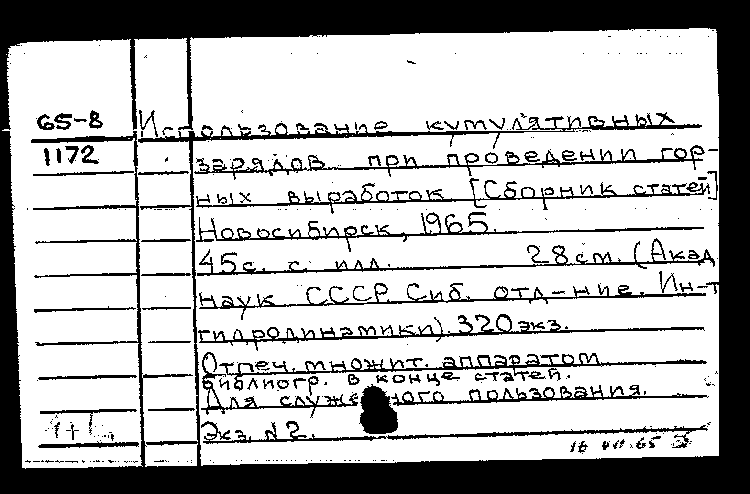 65-8 Использование кумулятивных
1172 зарядов при проведении гор-
ных выработок [Сборник статей]
Новосибирск, 1965.
45с. с илл. 28см. (Акад
наук СССР. Сиб. отд-ние. Ин-т
гидродинамики). 320экз.
Отпеч. множит. аппаратом
Библиогр. в конце статей.
Для служебного пользования.
1+1
Экз. №2.
65